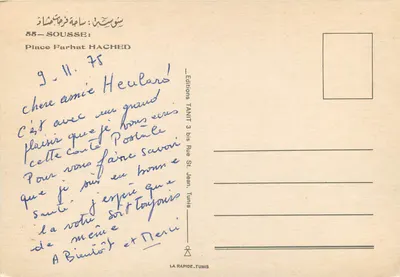 سوسة : ساحة فرحات حشاد
55 - SOUSSE:
Place Farhat HACHED
9. 11. 75
chere amie
C'est avec un grand
plaisir que je vous écris
cette carte Postale
Pour vous faire savoir
que je suis en bonne
santé, j'espère que
la votre soit toujours
de même
A Bientôt et Merci
Editions TANIT 3 bis Rue St. Jean, Tunis
LA RAPIDE - TUNIS